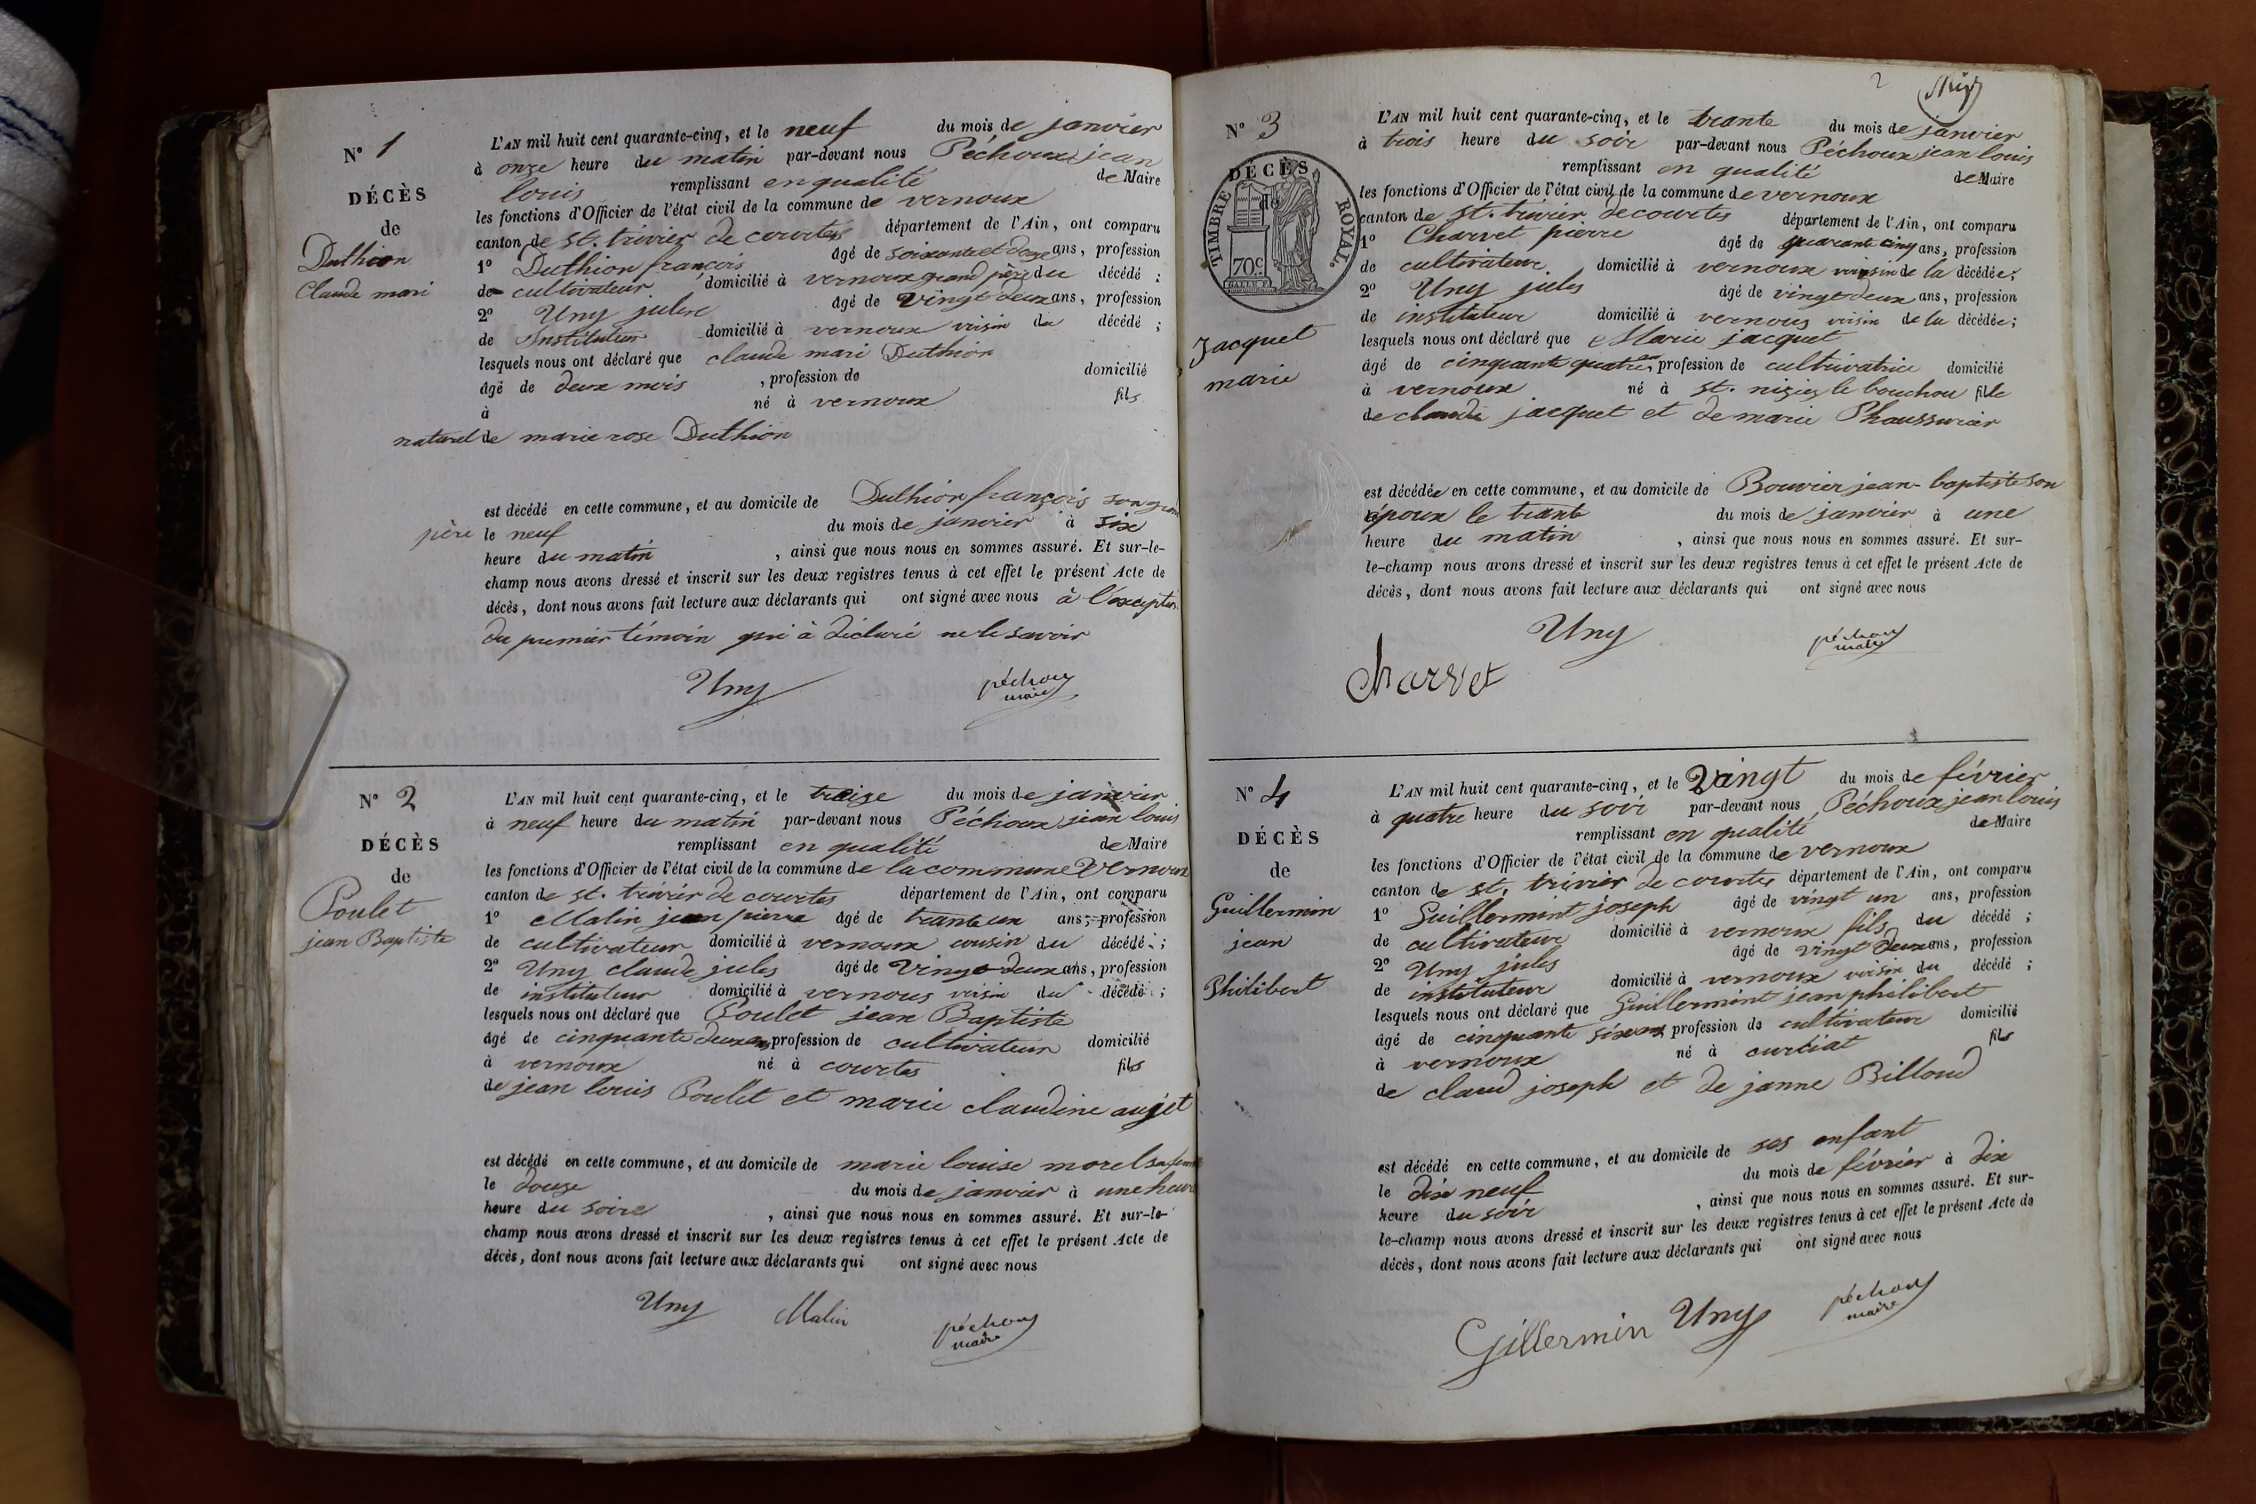 N° 1
DÉCÈS
de
Duthion
Claude mari
L'AN mil huit cent quarante-cinq, et le neuf du mois de janvier
à onze heure du matin par-devant nous Péchoux jean
louis remplissant en qualité de Maire
les fonctions d'Officier de l'état civil de la commune de vernoux
canton de st. trivier de courtes département de l'Ain, ont comparu
1° Duthion françois âgé de soixante et douze ans, profession
de cultivateur domicilié à vernoux grand père du décédé ;
2° Uny jules âgé de vingt deux ans, profession
de Instituteur domicilié à vernoux voisin du décédé ;
lesquels nous ont déclaré que claude mari Duthion
âgé de deux mois , profession de domicilié
à né à vernoux fils
naturel de marie rose Duthion
est décédé en cette commune, et au domicile de Duthion françois son grand
père le neuf du mois de janvier à six
heure du matin , ainsi que nous nous en sommes assuré. Et sur-le-
champ nous avons dressé et inscrit sur les deux registres tenus à cet effet le présent Acte de
décès, dont nous avons fait lecture aux déclarants qui ont signé avec nous à l'exception
du premier témoin qui à déclaré ne le savoir
Uny péchoux
maire
N° 2
DÉCÈS
de
Poulet
jean Baptiste
L'AN mil huit cent quarante-cinq, et le treize du mois de janvier
à neuf heure du matin par-devant nous Péchoux jean louis
remplissant en qualité de Maire
les fonctions d'Officier de l'état civil de la commune de la commune Vernoux
canton de st. trivier de courtes département de l'Ain, ont comparu
1° Malin jean pierre âgé de trante un ans, profession
de cultivateur domicilié à vernoux cousin du décédé ;
2° Uny claude jules âgé de vingt deux ans, profession
de instituteur domicilié à vernoux voisin du décédé ;
lesquels nous ont déclaré que Poulet jean Baptiste
âgé de cinquante deux ans profession de cultivateur domicilié
à vernoux né à courtes fils
de jean louis Poulet et marie claudine aujet
est décédé en cette commune, et au domicile de marie louise morel sa femme
le douze du mois de janvier à une heure
heure du soire , ainsi que nous nous en sommes assuré. Et sur-le-
champ nous avons dressé et inscrit sur les deux registres tenus à cet effet le présent Acte de
décès, dont nous avons fait lecture aux déclarants qui ont signé avec nous
Uny Malin péchoux
maire
2
N° 3
DÉCÈS
de
TIMBRE ROYAL.
70c
Jacquet
marie
L'AN mil huit cent quarante-cinq, et le trante du mois de janvier
à trois heure du soir par-devant nous Péchoux jean louis
remplissant en qualité de Maire
les fonctions d'Officier de l'état civil de la commune de vernoux
canton de st. trivier de courtes département de l'Ain, ont comparu
1° Charvet pierre âgé de quarante cinq ans, profession
de cultivateur domicilié à vernoux voisin de la décédée ;
2° Uny jules âgé de vingt deux ans, profession
de instituteur domicilié à vernoux voisin de la décédée ;
lesquels nous ont déclaré que Marie jacquet
âgé de cinquante quatre ans, profession de cultivatrice domicilié
à vernoux né à st. nizier le bouchou fille
de claude jacquet et de marie Phaussurier
est décédée en cette commune, et au domicile de Bouvier jean-baptiste son
époux le trante du mois de janvier à une
heure du matin , ainsi que nous nous en sommes assuré. Et sur-
le-champ nous avons dressé et inscrit sur les deux registres tenus à cet effet le présent Acte de
décès, dont nous avons fait lecture aux déclarants qui ont signé avec nous
Uny péchoux
maire
Charvet
N° 4
DÉCÈS
de
Guillermin
jean
Philibert
L'AN mil huit cent quarante-cinq, et le Vingt du mois de février
à quatre heure du soir par-devant nous Péchoux jean louis
remplissant en qualité de Maire
les fonctions d'Officier de l'état civil de la commune de vernoux
canton de st. trivier de courtes département de l'Ain, ont comparu
1° Guillermint joseph âgé de vingt un ans, profession
de cultivateur domicilié à vernoux fils du décédé ;
2° Uny jules âgé de vingt deux ans, profession
de instituteur domicilié à vernoux voisin du décédé ;
lesquels nous ont déclaré que Guillermint jean philibert
âgé de cinquante six ans profession de cultivateur domicilié
à vernoux né à curciat fils
de claud joseph et de janne Billoud
est décédé en cette commune, et au domicile de ses enfant
le dix neuf du mois de février à dix
heure du soir , ainsi que nous nous en sommes assuré. Et sur-
le-champ nous avons dressé et inscrit sur les deux registres tenus à cet effet le présent Acte de
décès, dont nous avons fait lecture aux déclarants qui ont signé avec nous
Gillermin Uny péchoux
maire